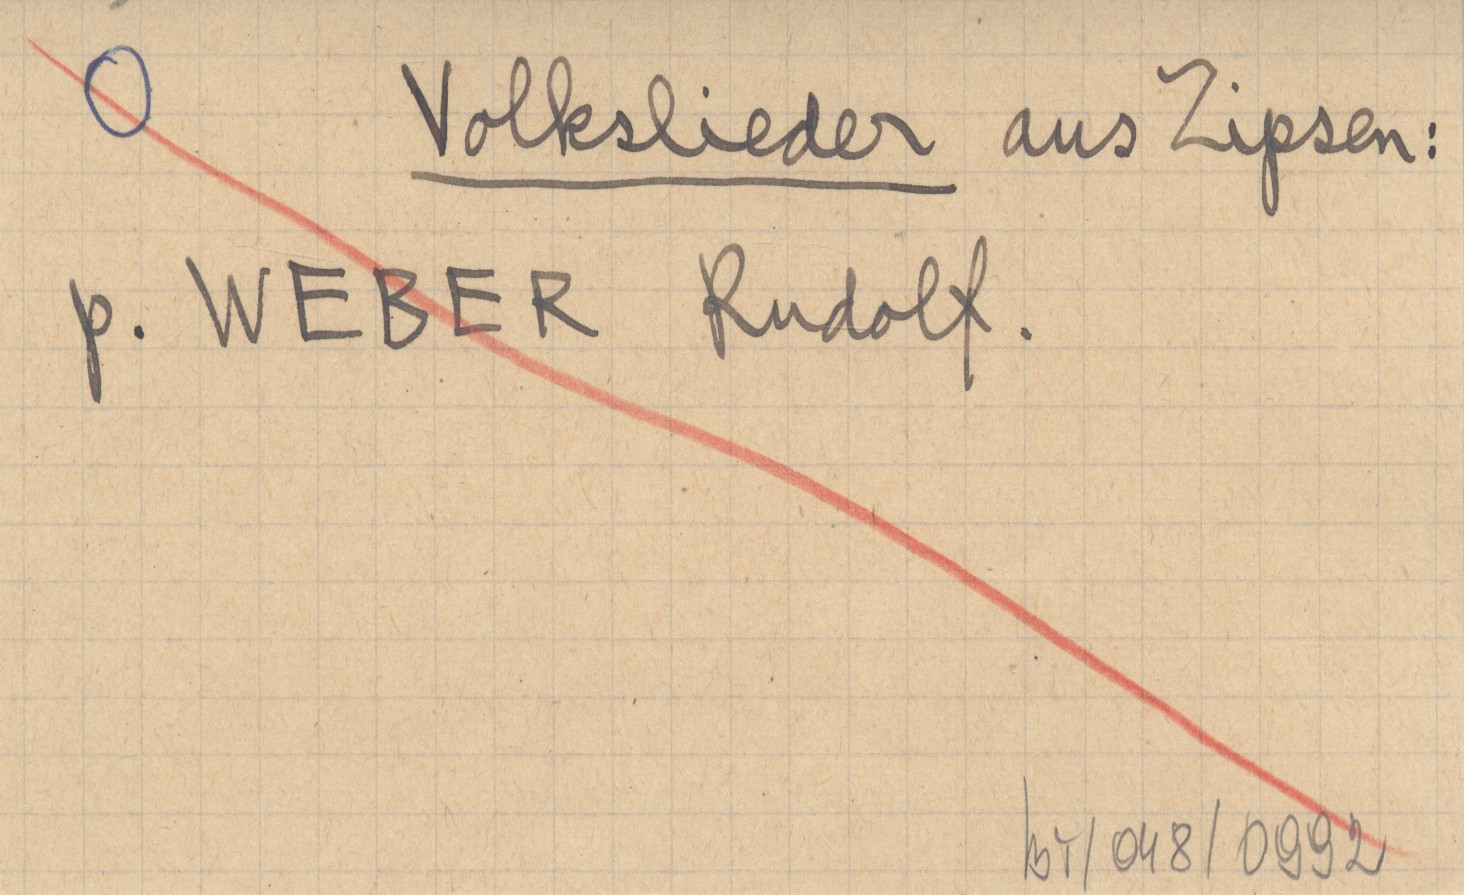 Volkslieder aus Zipsen:
p. WEBER Rudolf.
BT/048/0992